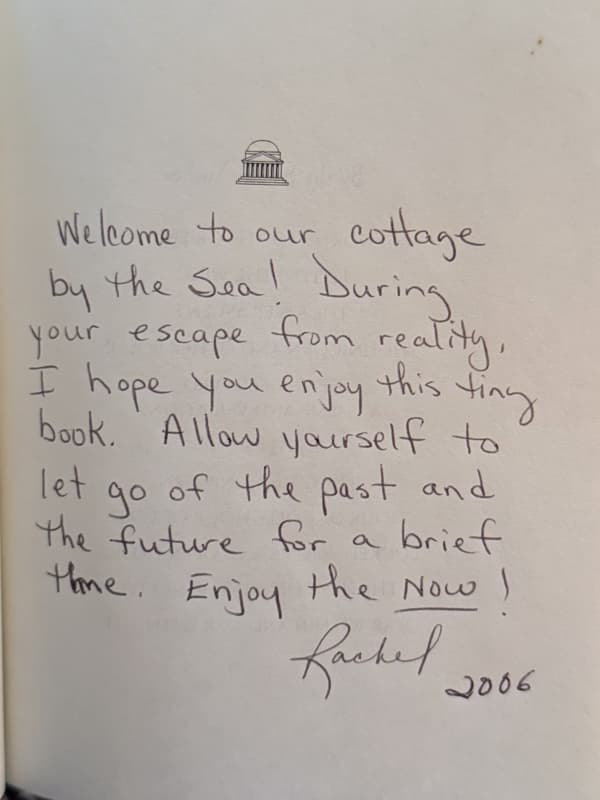 Welcome to our cottage
by the Sea! During
your escape from reality,
I hope you enjoy this tiny
book. Allow yourself to
let go of the past and
the future for a brief
time. Enjoy the Now!
Rachel
2006